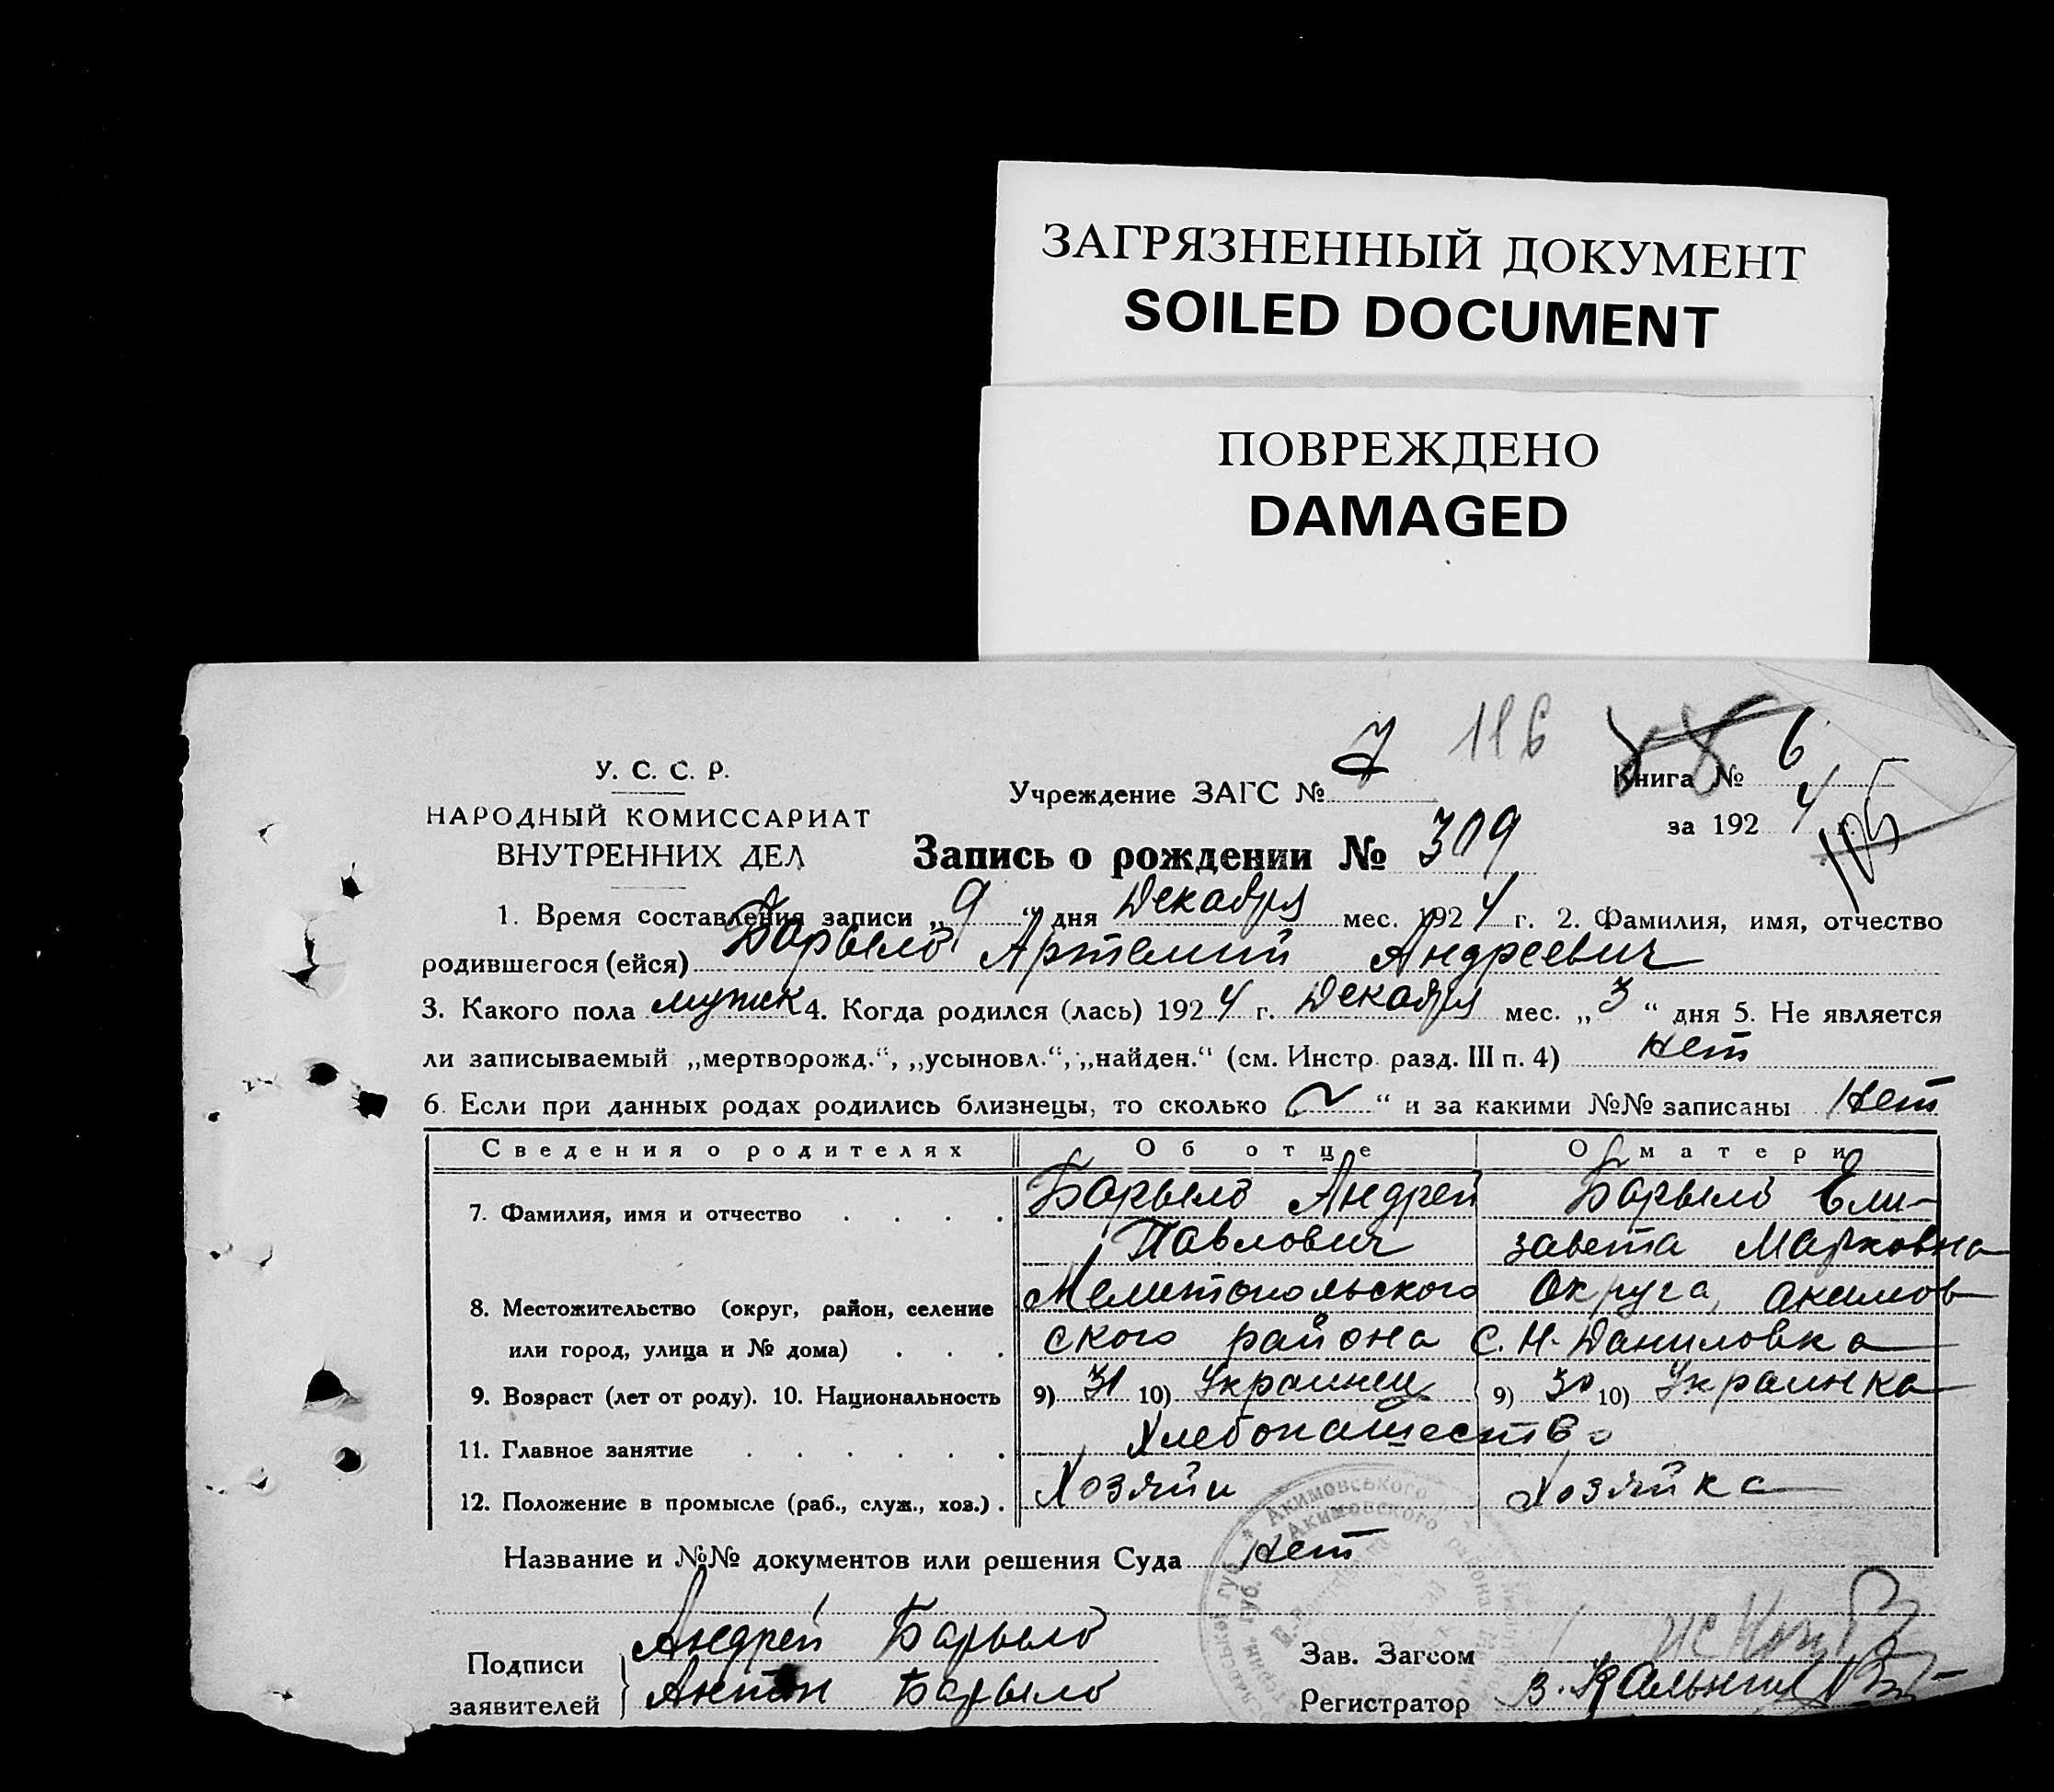 ЗАГРЯЗНЕННЫЙ ДОКУМЕНТ
SOILED DOCUMENT
ПОВРЕЖДЕНО
DAMAGED
116
У. С. С. Р.
НАРОДНЫЙ КОМИССАРИАТ
ВНУТРЕННИХ ДЕЛ
Учреждение ЗАГС № 7
Книга № 6
за 1924 г.
105
Запись о рождении № 309
1. Время составления записи „9“ дня Декабря мес. 1924 г. 2. Фамилия, имя, отчество
родившегося (ейся) Барыло Артемий Андреевич
3. Какого пола мужск 4. Когда родился (лась) 1924 г. Декабря мес. „3“ дня 5. Не является
ли записываемый „мертворожд.“, „усыновл.“, „найден.“ (см. Инстр. разд. III п. 4) нет
6. Если при данных родах родились близнецы, то сколько „~“ и за какими №№ записаны Нет
Сведения о родителях Об отце О матери
7. Фамилия, имя и отчество . . . . Барыло Андрей Барыло Ели-
Павлович завета Марковна
8. Местожительство (округ, район, селение Мелитопольского Округа, Акимов
или город, улица и № дома) . . . ского района С. Н. Даниловка
9. Возраст (лет от роду). 10. Национальность 9) 31 10) Украинец 9) 30 10) Украинка
11. Главное занятие . . . . . . Хлебопашество
12. Положение в промысле (раб., служ., хоз.) . Хозяин Хозяйка
Название и №№ документов или решения Суда Нет
Подписи
заявителей
Андрей Барыло
Антон Барыло
Зав. Загсом
Регистратор В.
Акимовського
Акимовского района